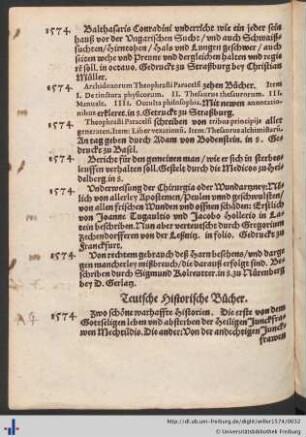 1574. Balthasaris Conradini vnderricht wie ein jeder sein
hauß vor der Vngarischen Sucht/ vnd auch Schweiß-
suchten/ Hirntoben/ Hals vnd Lungen geschwer/ auch
seiten wehe vnd Preune vnd dergleichen halten vnd regie
rẽ soll. in octauo. Gedruckt zu Straßburg bey Christian
Müller.
1574. Archidoxorum Theophrasti Paracelsi zehen Bücher. Item
I. De tinctura physicorum. II. Thesaurus thesaurorum. III.
Manuale. IIII. Occulta philosophia. Mit newen annotatio-
nibus erkleret. in 8. Gedruckt zu Straßburg.
1574. Theophrasti Paracelsi schreiben von tribus principijs aller
generaten. Item: Liber vexationũ. Item: Thesaurus alchimistarũ.
An tag geben durch Adam von Bodenstein. in 8. Ge-
druckt zu Basel.
1574. Bericht für den gemeinen man/ wie er sich in sterbes-
leufften verhalten soll. Gestelt durch die Medicos zu Hei-
delberg in 8.
1574. Vnderweisung der Chirurgia oder Wundartzney: Mẽ-
lich von allerley Apostemen/ Peulen vnnd geschwulstẽ/
von allen frischen Wunden vnd offnen schäden: Erstlich
von Joanne Tagaultio vnd Jacobo Hollerio in La-
tein beschriben. Nun aber verteutscht durch Gregorium
Zechendorfferen von der Leßnitz. in folio. Gedruckt zu
Franckfurt.
1574. Von rechtem gebrauch deß Harn besehens/ vnd darge
gen mancherley mißbreuch/ die darauß erfolgt sind. Be-
schriben durch Sigmund Kolreutter. in 8. zu Nürnberg
bey D. Gerlatz.
Teutsche Historische Bücher.
1574. Zwo schöne warhaffte Historien. Die erste von dem
Gottseligen leben vnd absterben der Heiligen Junckfra-
wen Mechtildis. Die ander: Von der andechtigen Junck-
frawen
http://dl.ub.uni-freiburg.de/diglit/willer1574/0032
© Universitätsbibliothek Freiburg